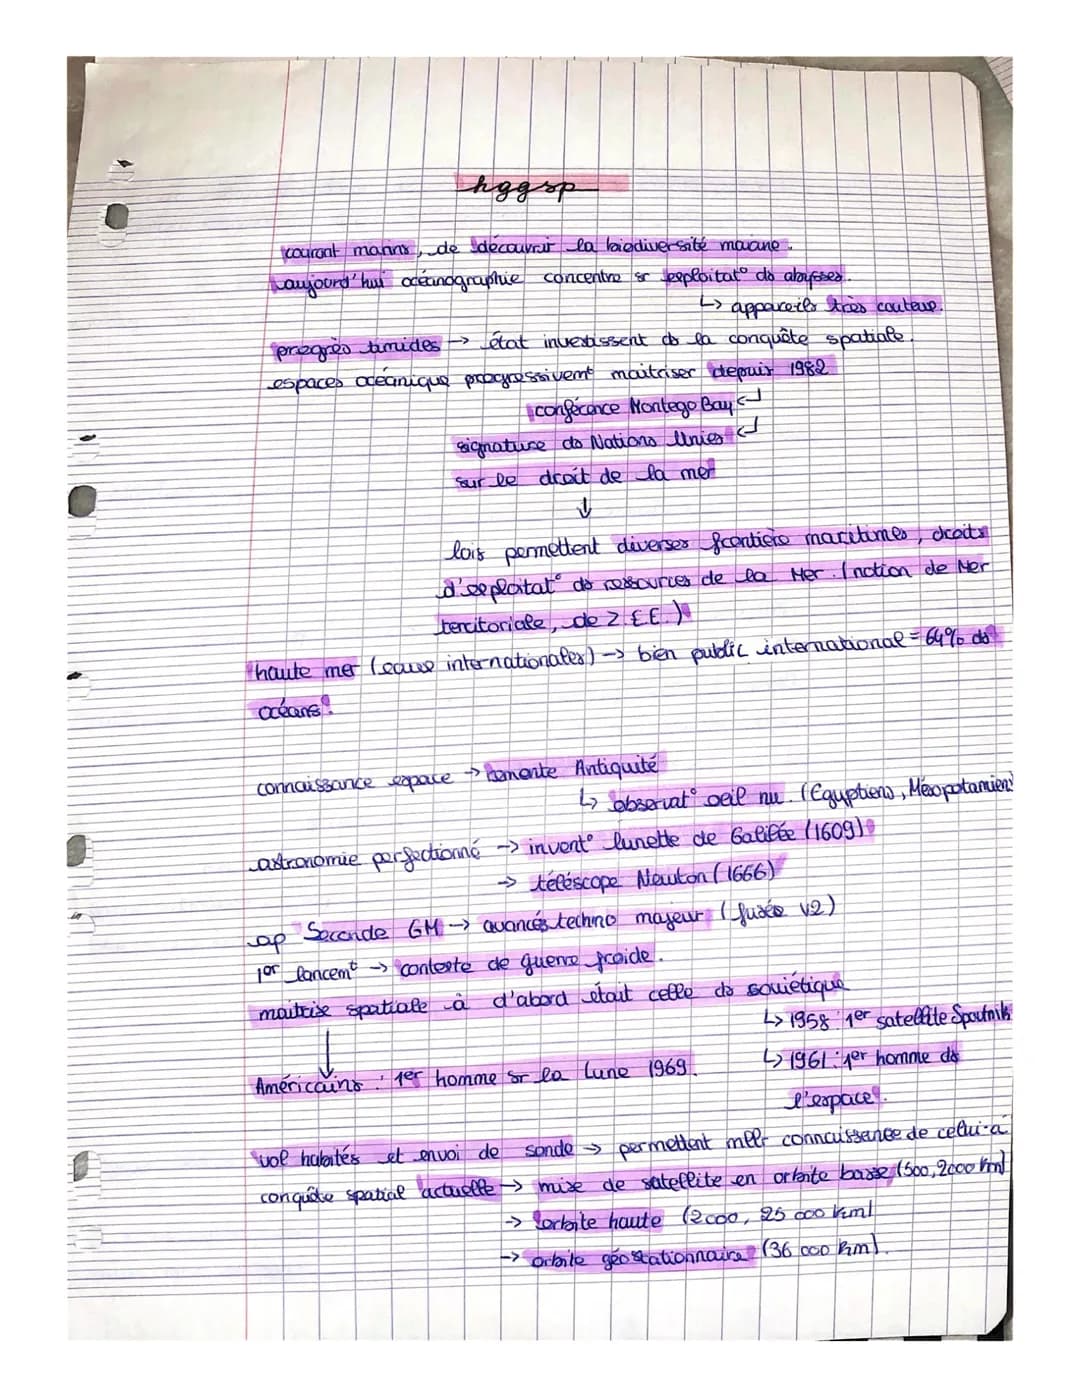 hggsp
courant marins, de découvrir la biodiversité marine.
aujourd'hui océanographie concentre sr exploitat° ds abysses.
↳ appareils très couteux.
progrès timides → état investissent ds la conquête spatiale.
espaces océanique progressivemt maitriser depuis 1982
conférence Montego Bay ↲
signature ds Nations Unies ↲
sur le droit de la mer
↓
lois permettent diverses frontière maritimes, droits
d'exploitat° ds ressources de la Mer. (notion de Mer
territoriale, de Z.E.E.)
haute mer (eaux internationales) → bien public international = 64% ds
océans.
connaissance espace → remonte Antiquité
↳ observat° oeil nu. (Egyptiens, Mésopotamiens
astronomie perfectionné → invent° lunette de Galilée (1609)
→ téléscope Newton (1666)
ap Seconde GM → avancés techno majeur (fusée V2)
1er lancemt → contexte de guerre froide.
maitrise spatiale à d'abord était celle ds soviétique
↳ 1958 : 1er satellite Spoutnik
↓
↳ 1961 : 1er homme ds
Américains : 1er homme sr la Lune 1969.
l'espace.
vol habités et envoi de sonde → permettent mllr connaissance de celui-ci
conquête spatial actuelle → mise de satellite en orbite basse (500, 2000 km)
→ orbite haute (2000, 25 000 km)
→ orbite géostationnaire (36 000 km).